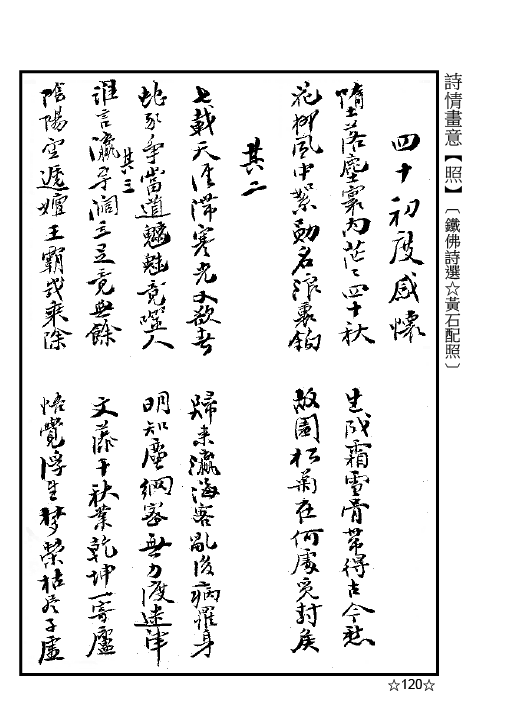 詩情畫意【照】〔鐵佛詩選☆黃石配照〕
四十初度感懷
墮落塵寰內茫〻四十秋　生成霜雪骨帶得古今愁
花柳風中絮勛名浪裏鉤　故園松菊在何處覓封侯
其二
七載天涯滯寒光又欲春　歸來瀛海客亂後病罹身
蛇豕爭當道魑魅竟噬人　明知塵網密無力渡迷津
其三
誰言瀛島闊立足竟無餘　文藻千秋業乾坤一寄廬
陰陽空遞嬗王霸或乘除　悟覺浮生夢榮枯尽子虛
☆120☆